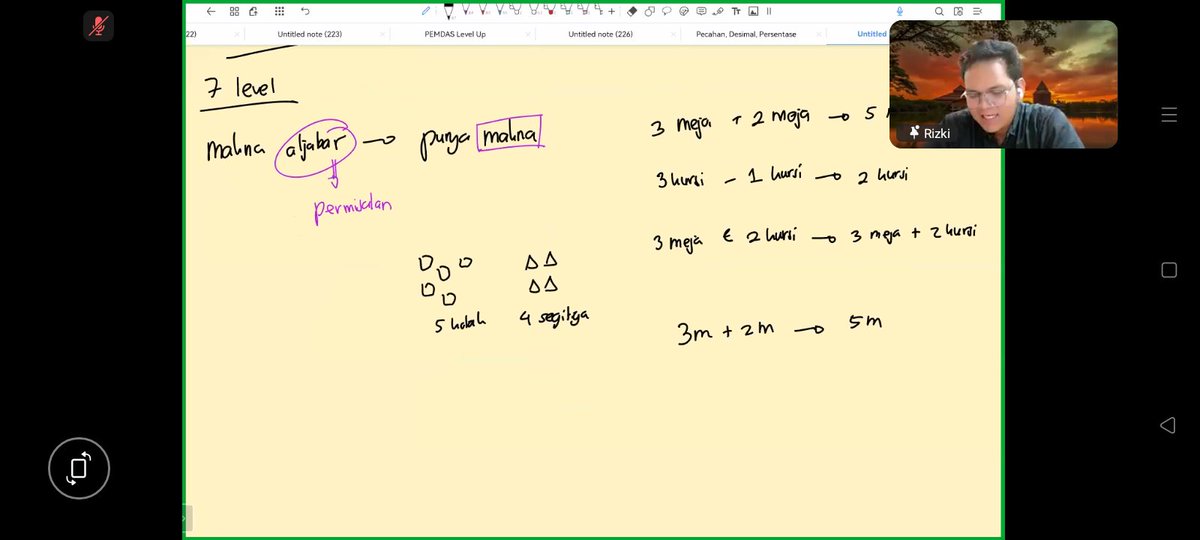 22)
Untitled note (223)
PEMDAS Level Up
Untitled note (226)
Pecahan, Desimal, Persentase
Untitled
Rizki
7 level
makna aljabar → punya makna
permisalan
5 kotak
4 segitiga
3 meja + 2 meja → 5
3 kursi - 1 kursi → 2 kursi
3 meja & 2 kursi → 3 meja + 2 kursi
3m + 2m → 5m